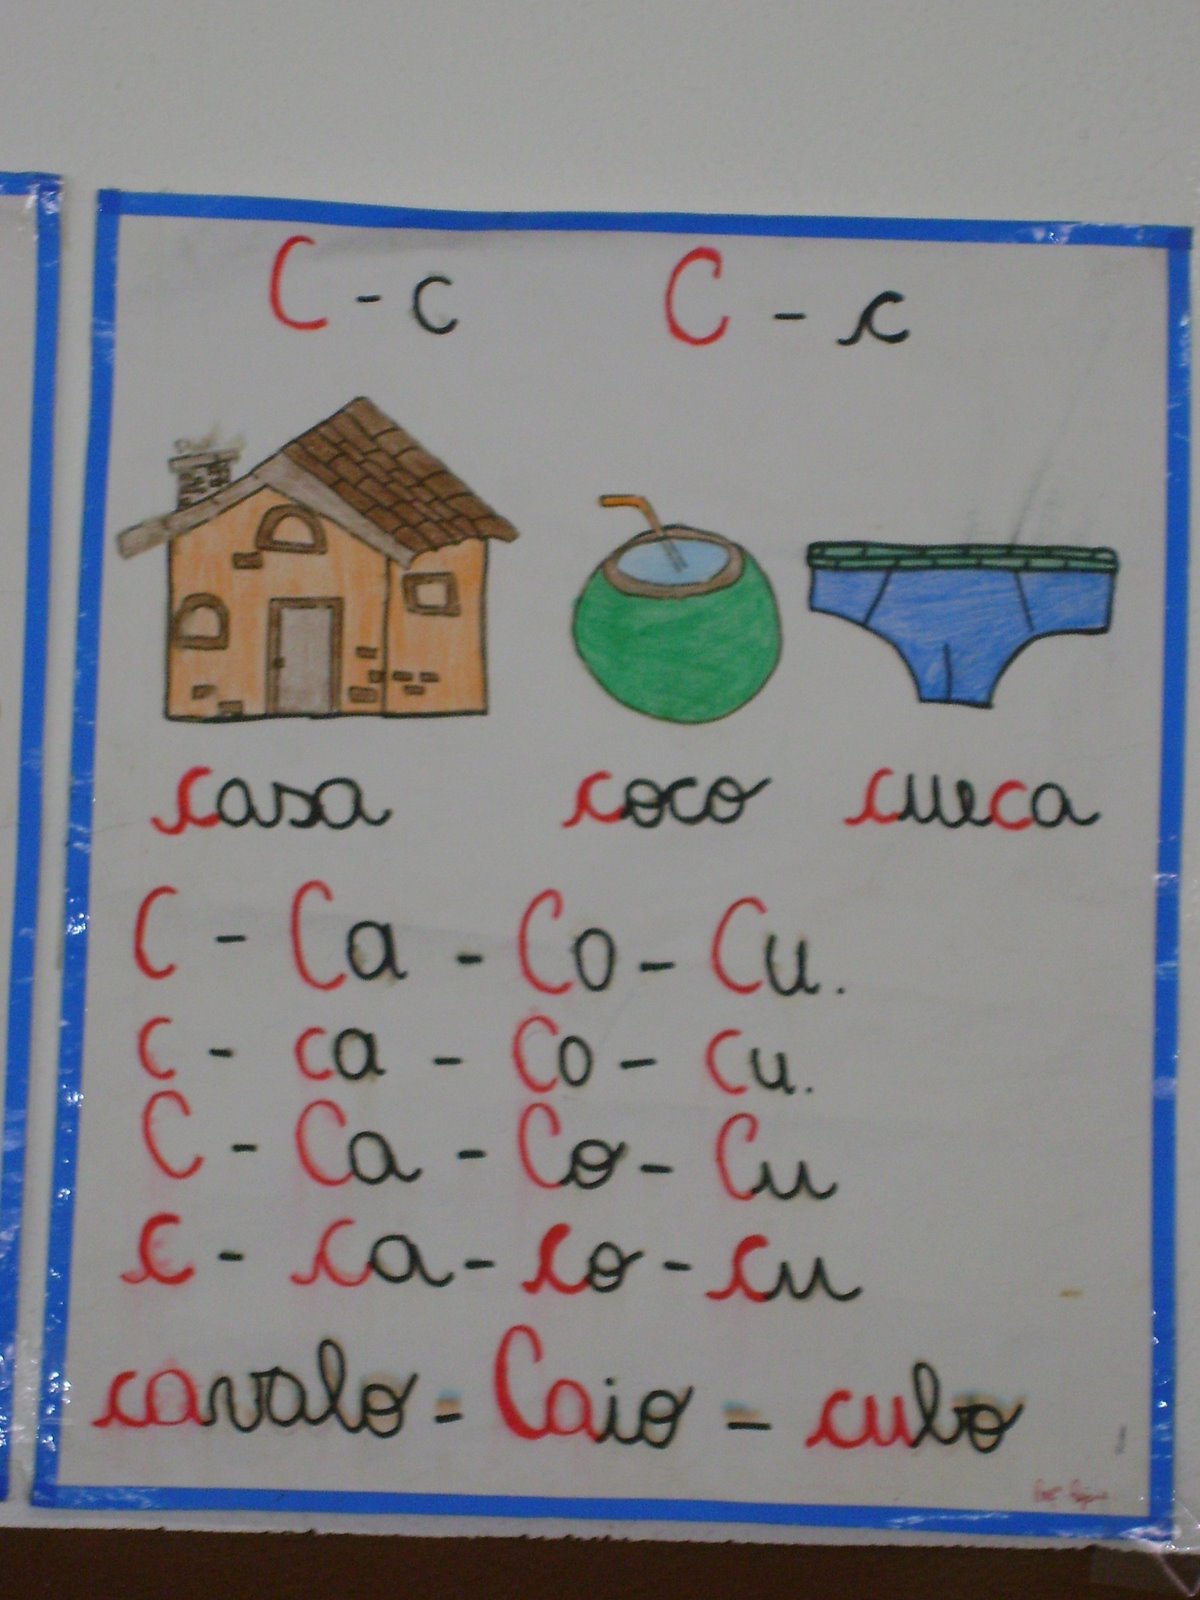 C - c C - c
casa coco cueca
C - Ca - Co - Cu.
c - ca - co - cu.
C - Ca - Co - Cu
c - ca - co - cu
cavalo - Caio - cubo